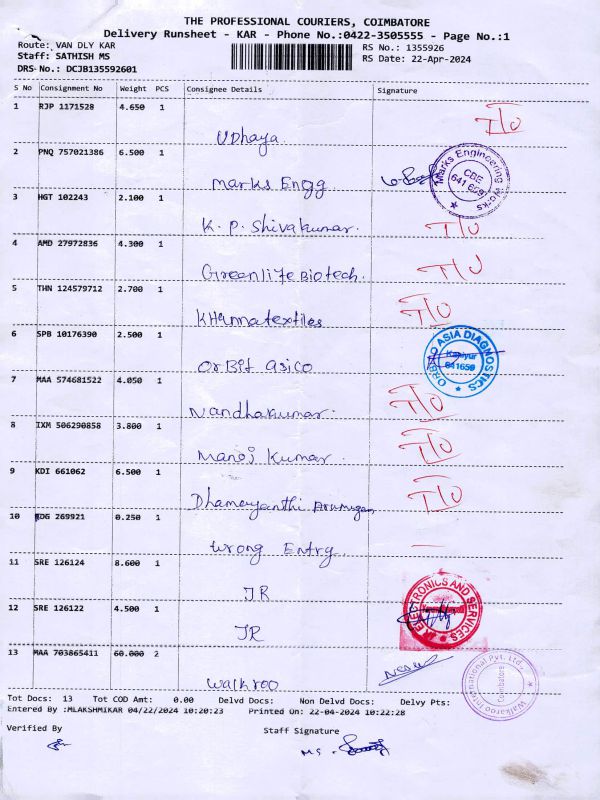 THE PROFESSIONAL COURIERS, COIMBATORE
Delivery Runsheet - KAR - Phone No.:0422-3505555 - Page No.:1
Route: VAN DLY KAR
RS No.: 1355926
Staff: SATHISH MS
RS Date: 22-Apr-2024
DRS No.: DCJB135592601
S No Consignment No Weight PCS Consignee Details Signature
1 RJP 1171528 4.650 1
T/O
Udhaya
2 PNQ 757021386 6.500 1
Marks Engg
Marks Engineering Works
CBE
641 659
3 HGT 102243 2.100 1
K. P. Shivakumar. T/O
4 AMD 27972836 4.300 1
Greenlife Biotech. T/O
5 THN 124579712 2.700 1
KHannatextiles T/O
6 SPB 10176390 2.500 1
Orbit asico
ASIA DIAGNOSTICS
Kaniyur
641659
7 MAA 574681522 4.050 1
Nandhakumar. T/O
8 IXM 506290858 3.800 1
Manoj Kumar. T/O
9 KDI 661062 6.500 1
Dhamayanthi Arumugam T/O
10 KDG 269921 0.250 1
Wrong Entry —
11 SRE 126124 8.600 1
JR
ELECTRONICS AND SERVICES
12 SRE 126122 4.500 1
JR
13 MAA 703865411 60.000 2
Walkroo
Walkaroo International Pvt. Ltd.,
Coimbatore
Tot Docs: 13 Tot COD Amt: 0.00 Delvd Docs: Non Delvd Docs: Delvy Pts:
Entered By :MLAKSHMIKAR 04/22/2024 10:20:23 Printed On: 22-04-2024 10:22:28
Verified By
Staff Signature
MS.